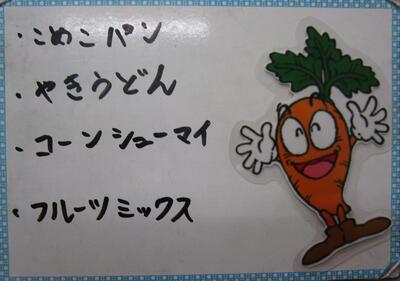 ・こめこパン
・やきうどん
・コーンシューマイ
・フルーツミックス